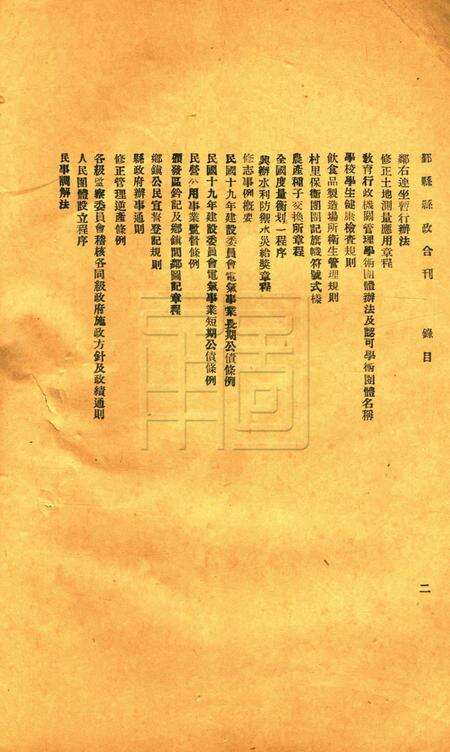 鄞縣縣政合刊 錄目
鄰右連坐暫行辦法
修正土地測量應用章程
教育行政機關管理學術團體辦法及認可學術團體名稱
學校學生健康檢查規則
飲食品製造場所衛生管理規則
村里保衛團圖記旗幟符號式樣
農產種子交換所章程
全國度量衡劃一程序
興辦水利防禦水災給獎章程
修志事例概要
民國十九年建設委員會電氣事業長期公債條例
民國十九年建設委員會電氣事業短期公債條例
民營公用事業監督條例
頒發區鈐記及鄉鎮閭鄰圖記章程
鄉鎮公民宣誓登記規則
縣政府辦事通則
修正管理逆產條例
各級監察委員會稽核各同級政府施政方針及政績通則
人民團體設立程序
民事調解法
二